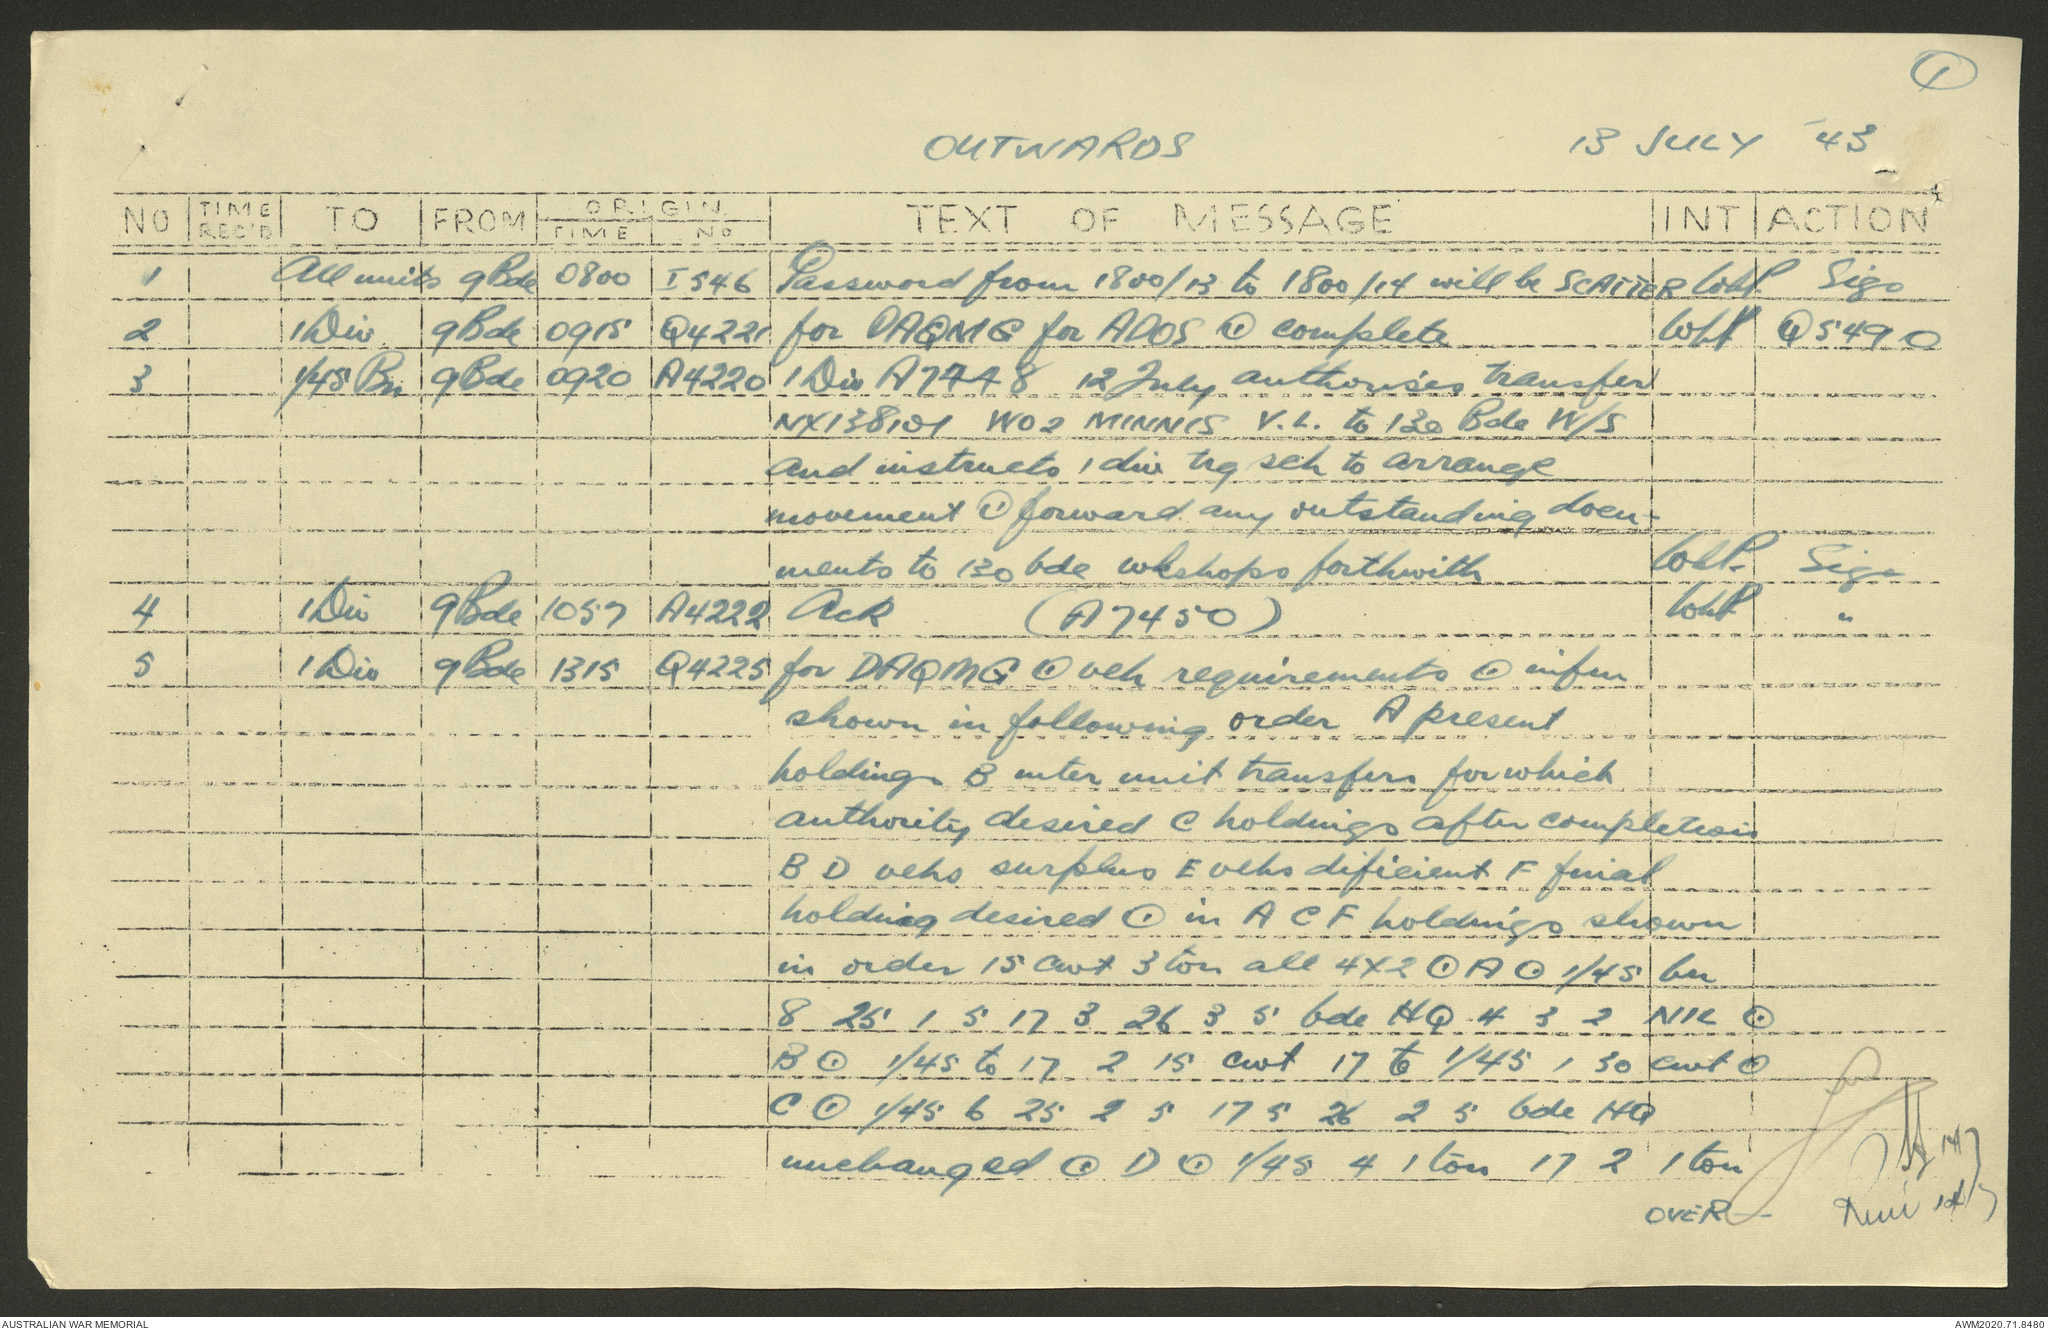 1
OUTWARDS 13 JULY '43
NO TIME REC'D TO FROM ORIGIN TIME NO TEXT OF MESSAGE INT ACTION
1 All units 9 Bde 0800 I546 Password from 1800/13 to 1800/14 will be SCATTER WhP Sigs
2 1 Div 9 Bde 0915 Q4221 for DAQMG for ADOS ⊙ complete WhP Q5490
3 1/45 Bn 9 Bde 0920 A4220 1 Div A7448 12 July authorises transfer
NX138101 WO2 MINNIS V.L. to 130 Bde W/S
and instructs 1 div trg sch to arrange
movement ⊙ forward any outstanding docu-
ments to 130 bde wkshops forthwith WhP Sigs
4 1 Div 9 Bde 1057 A4222 Ack (A7450) WhP "
5 1 Div 9 Bde 1315 Q4225 for DAQMG ⊙ veh requirements ⊙ infm
shown in following order A present
holdings B inter unit transfers for which
authority desired C holdings after completion
B D vehs surplus E vehs dificient F final
holding desired ⊙ in A C F holdings shown
in order 15 cwt 3 ton all 4X2 ⊙ A ⊙ 1/45 bn
8 25 1 5 17 3 26 3 5 bde HQ 4 3 2 NIL ⊙
B ⊙ 1/45 to 17 2 15 cwt 17 to 1/45 1 30 cwt ⊙
C ⊙ 1/45 6 25 2 5 17 5 26 2 5 bde HQ
unchanged ⊙ D ⊙ 1/45 4 1 ton 17 2 1 ton
OVER —
14/7
14/7
AUSTRALIAN WAR MEMORIAL AWM2020.71.8480